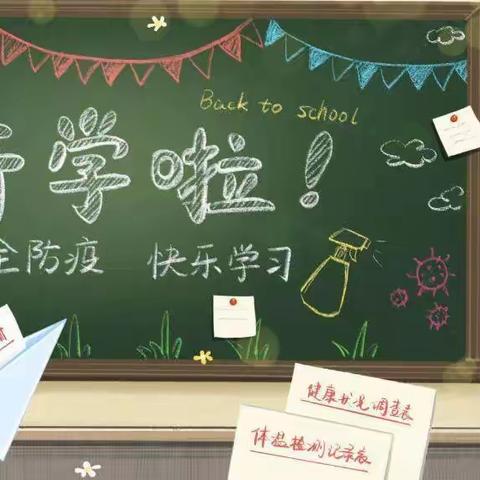 Back to school
学啦！
防疫 快乐学习
健康状况调查表
体温检测记录表